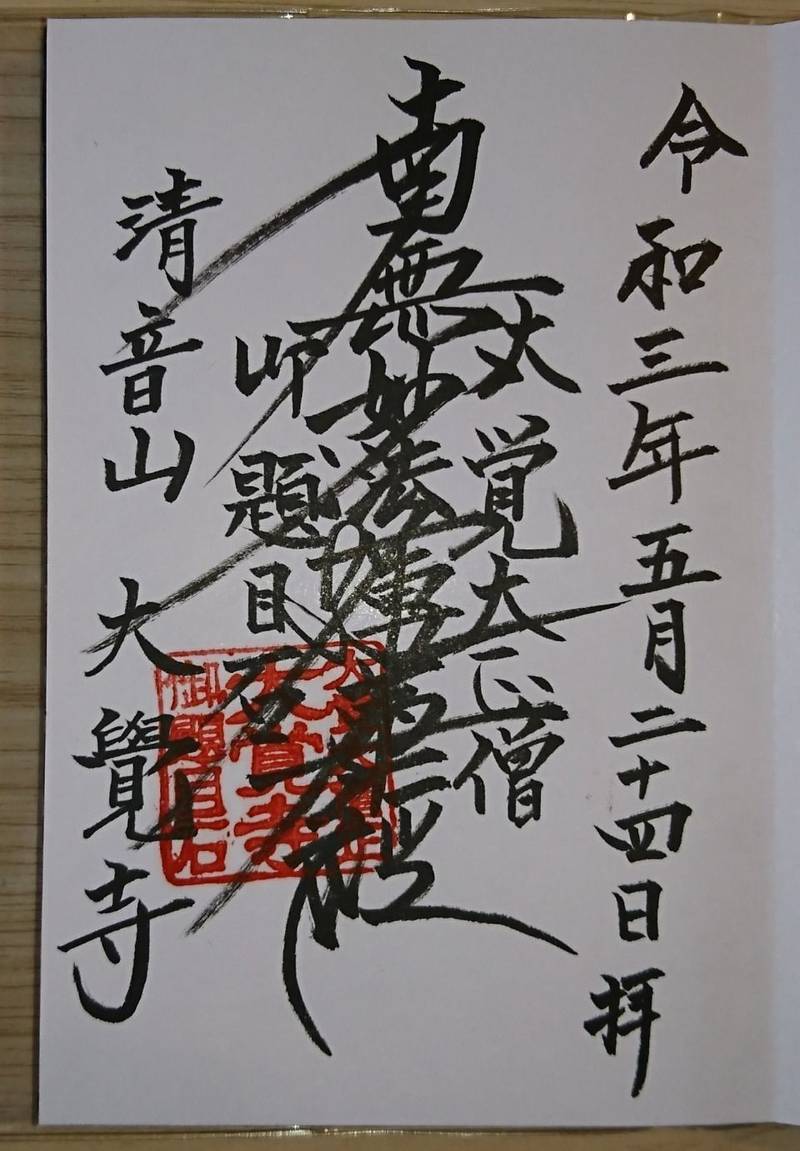 令和三年五月二十四日拝
大覚大正僧
南無妙法蓮華経
師題目石
清音山 大覺寺
大覚寺
御題目石